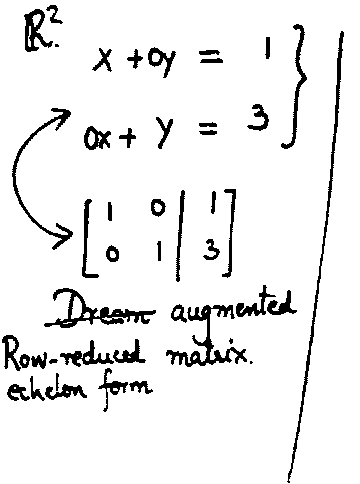 ℝ².
x + 0y = 1
0x + y = 3
[ 1 0 | 1 ]
[ 0 1 | 3 ]
Dream augmented
Row-reduced matrix.
echelon form